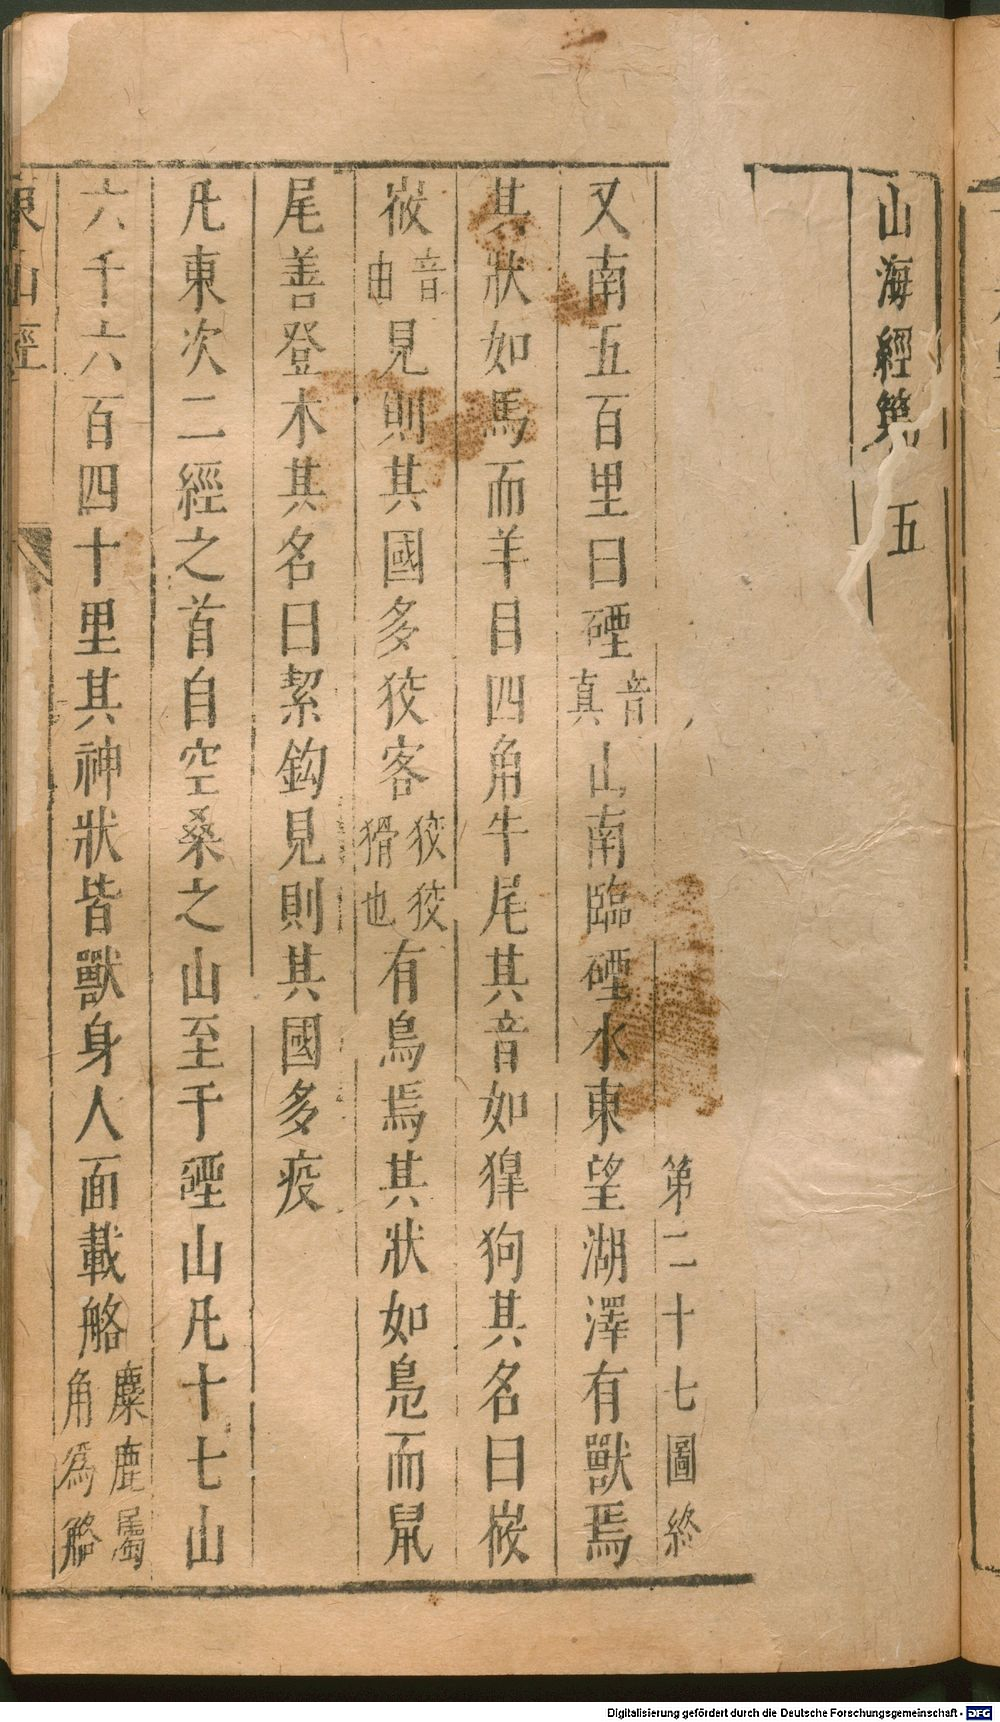 山海經第五
第二十七圖終
又南五百里曰硾音真山南臨硾水東望湖澤有獸焉
其狀如馬而羊目四角牛尾其音如獆狗其名曰峳
峳音由見則其國多狡客狡狡猾也有鳥焉其狀如鳧而鼠
尾善登木其名曰絜鈎見則其國多疫
凡東次二經之首自空桑之山至于䃌山凡十七山
六千六百四十里其神狀皆獸身人面載觡麋鹿屬角為觡
東山經
Digitalisierung gefördert durch die Deutsche Forschungsgemeinschaft - DFG